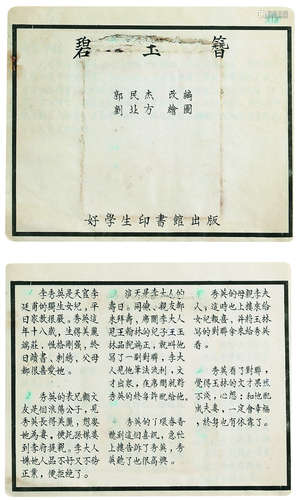 碧玉簪
郭民杰 改編
劉北方 繪圖
好學生印書館出版
1
李秀英是天官李
廷甫的獨生女兒，平
日家教很嚴。秀英這
年十八歲，生得美麗
端莊，性格剛強，終
日讀書、刺繡，父母
都很喜愛她。
2
秀英的表兄顧文
友是個浪蕩公子，見
秀英長得美麗，想娶
她為妻，便託孫媒婆
到李府提親。李大人
嫌他人品不好又不務正
業，便拒絕了。
3
這天是李大人的
壽日。同僚、親友都
來拜壽，席間李大人
見王翰林的兒子王玉
林品貌端正，就叫他
寫了一副對聯，李大
人見他筆法流利，文
才出眾，在席間就將
秀英的終身許配給他。
4
秀英的丫環春香
聽到這個喜訊，急忙
上樓告訴了秀英，秀
英聽了也很高興。
5
秀英的母親李夫
人，這時也上樓來給
女兒報喜，并將王林
寫的對聯拿來給秀英
看。
6
秀英看了對聯，
覺得王林的文才果然
不淺，心想：和他配
成夫妻，一定會幸福
，終身也有依靠了。